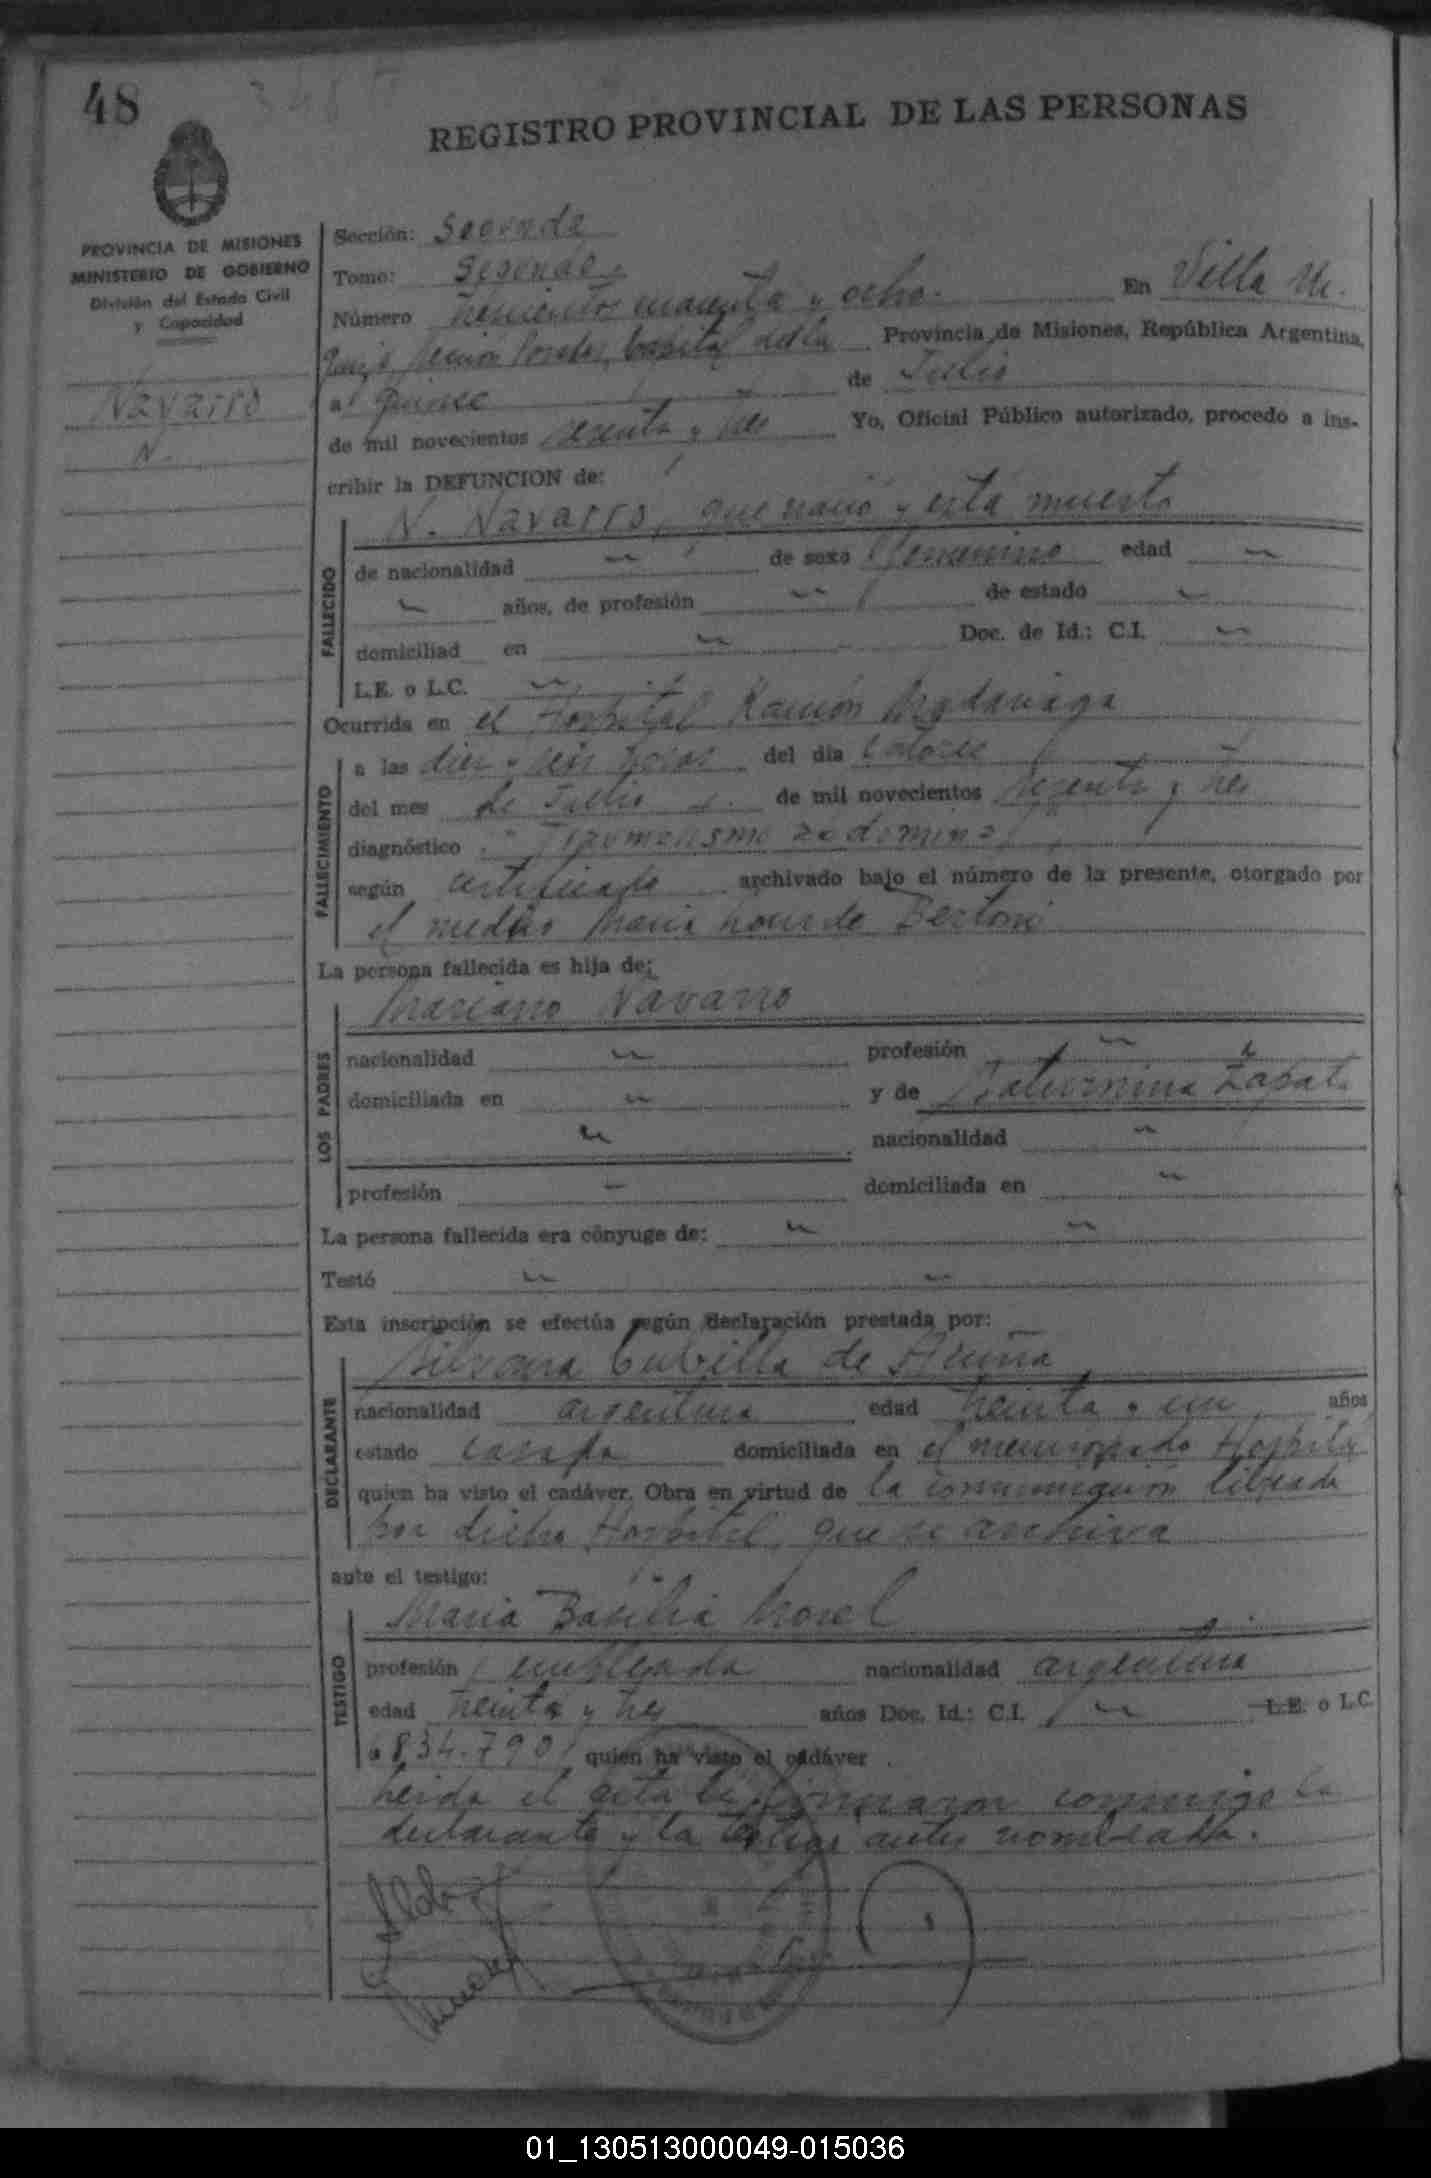 48
REGISTRO PROVINCIAL DE LAS PERSONAS
PROVINCIA DE MISIONES
MINISTERIO DE GOBIERNO
División del Estado Civil
y Capacidad
Navarro
N.
Sección: Segunda
Tomo: Segundo
Número trescientos cuarenta y ocho. En Villa
Provincia de Misiones, República Argentina,
a quince de Julio
de mil novecientos sesenta y tres Yo, Oficial Público autorizado, procedo a ins-
cribir la DEFUNCION de:
N. Navarro, que nació y está muerto
FALLECIDO
de nacionalidad " de sexo femenino edad "
" años, de profesión " de estado "
domiciliad en " Doc. de Id.: C.I. "
L.E. o L.C. "
Ocurrida en el Hospital Ramón Madariaga
FALLECIMIENTO
a las diez y seis horas del día catorce
del mes de Julio de mil novecientos sesenta y tres
diagnóstico
según certificado archivado bajo el número de la presente, otorgado por
el médico María Lourde Bertoni
La persona fallecida es hija de:
LOS PADRES
Mariano Navarro
nacionalidad " profesión "
domiciliada en " y de Saturnina Zapata
" nacionalidad "
profesión " domiciliada en "
La persona fallecida era cónyuge de: " "
Testó " "
Esta inscripción se efectúa según declaración prestada por:
DECLARANTE
Silvana Cubilla de Acuña
nacionalidad argentina edad treinta y un años
estado casada domiciliada en el mencionado Hospital
quien ha visto el cadáver. Obra en virtud de la comunicación librada
por dicho Hospital, que se archiva
ante el testigo:
TESTIGO
María Basilia Morel
profesión empleada nacionalidad argentina
edad treinta y tres años Doc. Id.: C.I. " L.E. o L.C.
6834.790 quien ha visto el cadáver
Leída el acta la firmaron conmigo la
declarante y la testigo antes nombrada.
01_130513000049-015036